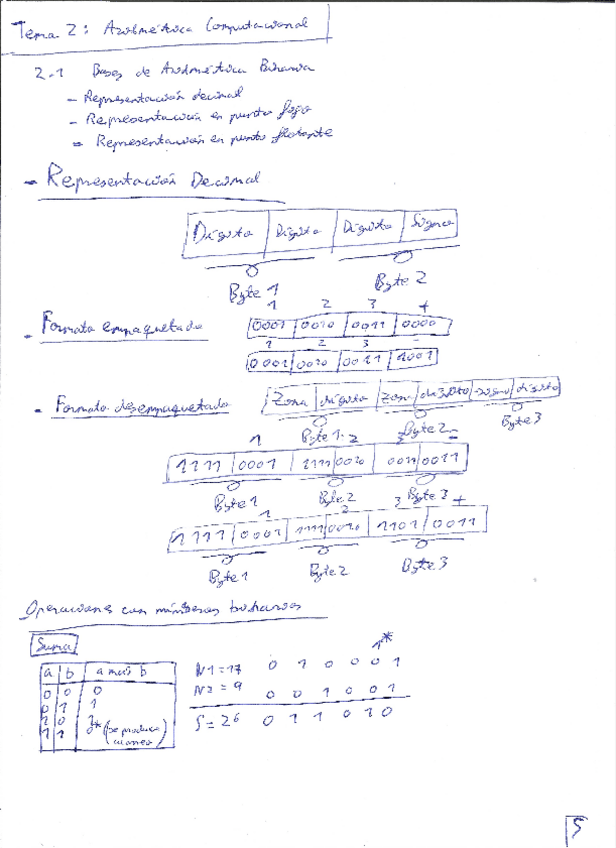 Tema 2: Aritmética Computacional
2.1 Bases de Aritmética Binaria
- Representación decimal
- Representación en punto fijo
- Representación en punto flotante
- Representación Decimal
Dígito Dígito Dígito Signo
Byte 1 Byte 2
1 2 3 +
- Formato empaquetado 0001 0010 0011 0000
1 2 3 -
0001 0010 0011 1001
- Formato desempaquetado Zona dígito Zona dígito signo dígito
Byte 1 Byte 2 Byte 3
1 2 3 -
1111 0001 1111 0010 0011
Byte 1 Byte 2 Byte 3
1 2 3 +
1111 0001 1111 0010 1101 0011
Byte 1 Byte 2 Byte 3
Operaciones con números binarios
Suma
a b a más b
0 0 0
0 1 1
1 0 1
1 1 0* (se produce acarreo)
1*
N1=17 0 1 0 0 0 1
N2=9 0 0 1 0 0 1
S=26 0 1 1 0 1 0
5